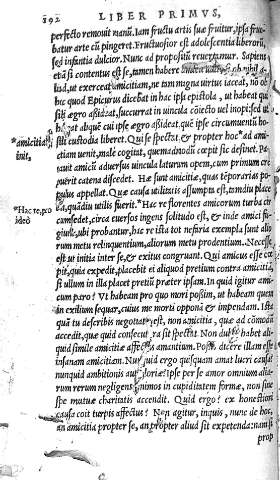 292 LIBER PRIMVS,
perfecto removit manũ. Iam fructu artis suæ fruitur, ipsa fruc
batur arte cũ pingeret. Fructuosior est adolescentia liberorũ,
sed infantia dulcior. Nunc ad propositũ revertamur. Sapiens
etiã si contentus est se, tamen habere
ud, ut exerceat amicitiam, ne tam magna virtus iaceat, nõ ob
hoc quod Epicurus dicebat in hac ipsa epistola, ut habeat qui
sibi ægro assideat, succurrat in vincula coiecto vel inopi: sed ut
habeat aliquẽ cui ipse ægro assideat, quẽ ipse circumventũ ho-
*amicitiã stili custodia liberet. Qui se spectat, & propter hoc ad ami-
init, citiam venit, male cogitat, quemadmodũ cœpit sic desinet. Pa-
ravit amicũ adversus vincula laturum opem, cum primum cre
puerit catena discedet. Hæ sunt amicitiæ, quas tẽporarias po
pulus appellat. Que causa utilitatis assumptus est, tamdiu place
bit, quãdiu utilis fuerit. *Hac re florentes amicorum turba cir
*Hac re, pro
ideo cumsedet, circa eversos ingens solitudo est, & inde amici fu-
giunt, ubi probantur, hac re ista tot nefaria exempla sunt aliq
rum metu relinquentium, aliorum metu prodentium. Necesse
est ut initia inter se, & exitus congruant. Qui amicus esse cœ
pit, quia expedit, placebit ei aliquod pretium contra amicitiã,
si ullum in illa placet pretiũ præter ipsam. In quid igitur ami-
cum paro? Vt habeam pro quo mori possim, ut habeam quem
in exilium sequar, cuius me morti opponã & impendam. Ista
quã tu describis negotiatio est, non amicitia, quæ ad cõmodũ
accedit, quæ quid consecutura sit spectat. Non dubie habet ali-
quid simile amicitiæ affectus amantium. Possis dicere illam esse
insanam amicitiam. Nunquid ergo quisquam amat lucri causa?
nunquid ambitionis aut gloriæ? Ipse per se amor omnium alia-
rum rerum negligens animos in cupiditatem formæ, non sine
spe mutuæ charitatis accendit. Quid ergo? ex honestiori
causa coit turpis affectus? Non agitur, inquis, nunc de hoc,
an amicitia propter se, an propter aliud sit expetenda: nam si
prop